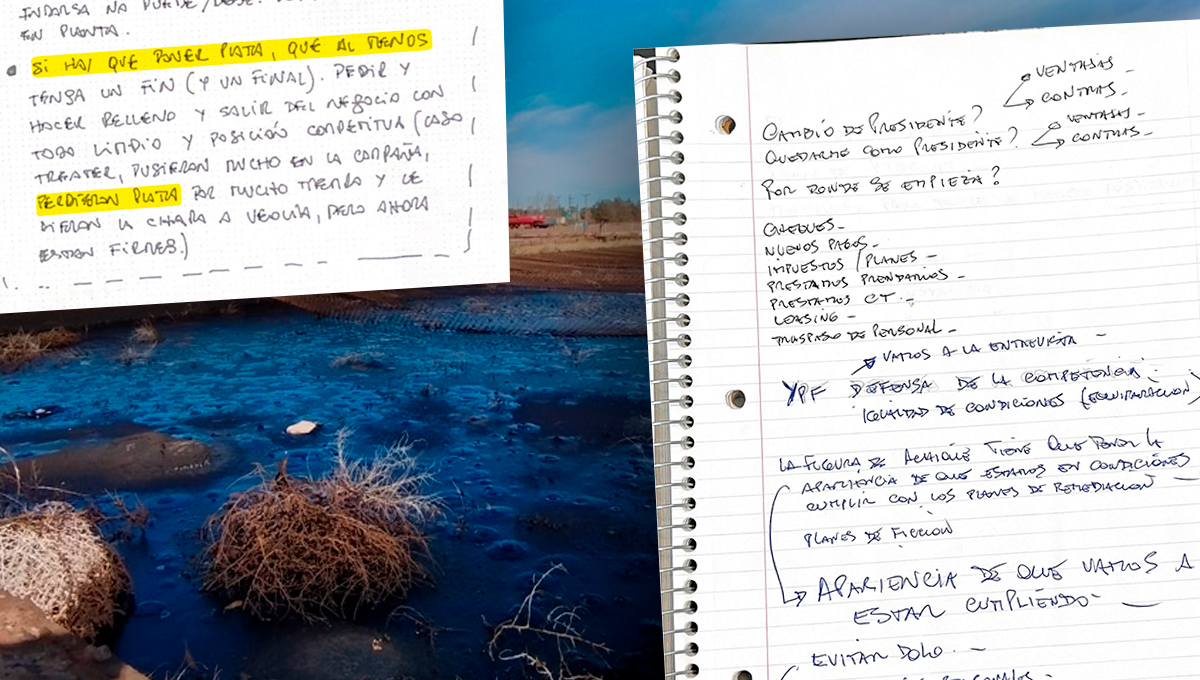 INDARSA NO PUEDE/DEBE.
EN PLANTA.
SI HAY QUE PONER PLATA, QUE AL MENOS
TENGA UN FIN (Y UN FINAL). PEDIR Y
HACER RELLENO Y SALIR DEL NEGOCIO CON
TODO LIMPIO Y POSICIÓN COMPETITIVA (CASO
TREATER, PUSIERON MUCHO EN LA CAMPAÑA,
PERDIERON PLATA POR MUCHO TIEMPO Y LE
DIERON LA CHARA A VEOLIA, PERO AHORA
ESTAN FIRMES.)
CAMBIO DE PRESIDENTE? VENTAJAS -
CONTRAS -
QUEDARME COMO PRESIDENTE? VENTAJAS -
CONTRAS -
POR DONDE SE EMPIEZA?
CHEQUES -
NUEVOS PAGOS -
IMPUESTOS / PLANES -
PRESTAMOS PRENDARIOS -
PRESTAMOS CT. -
LEASING -
TRASPASO DE PERSONAL -
VAMOS A LA ENTREVISTA -
YPF DEFENSA DE LA COMPETENCIA.
IGUALDAD DE CONDICIONES (EQUIPARACION)
LA FIGURA DE TIENE QUE TENER LA
APARIENCIA DE QUE ESTAMOS EN CONDICIONES
CUMPLIR CON LOS PLANES DE REMEDIACION -
PLANES DE FICCION
APARIENCIA DE QUE VAMOS A
ESTAR CUMPLIENDO -
EVITAR DOLO. -